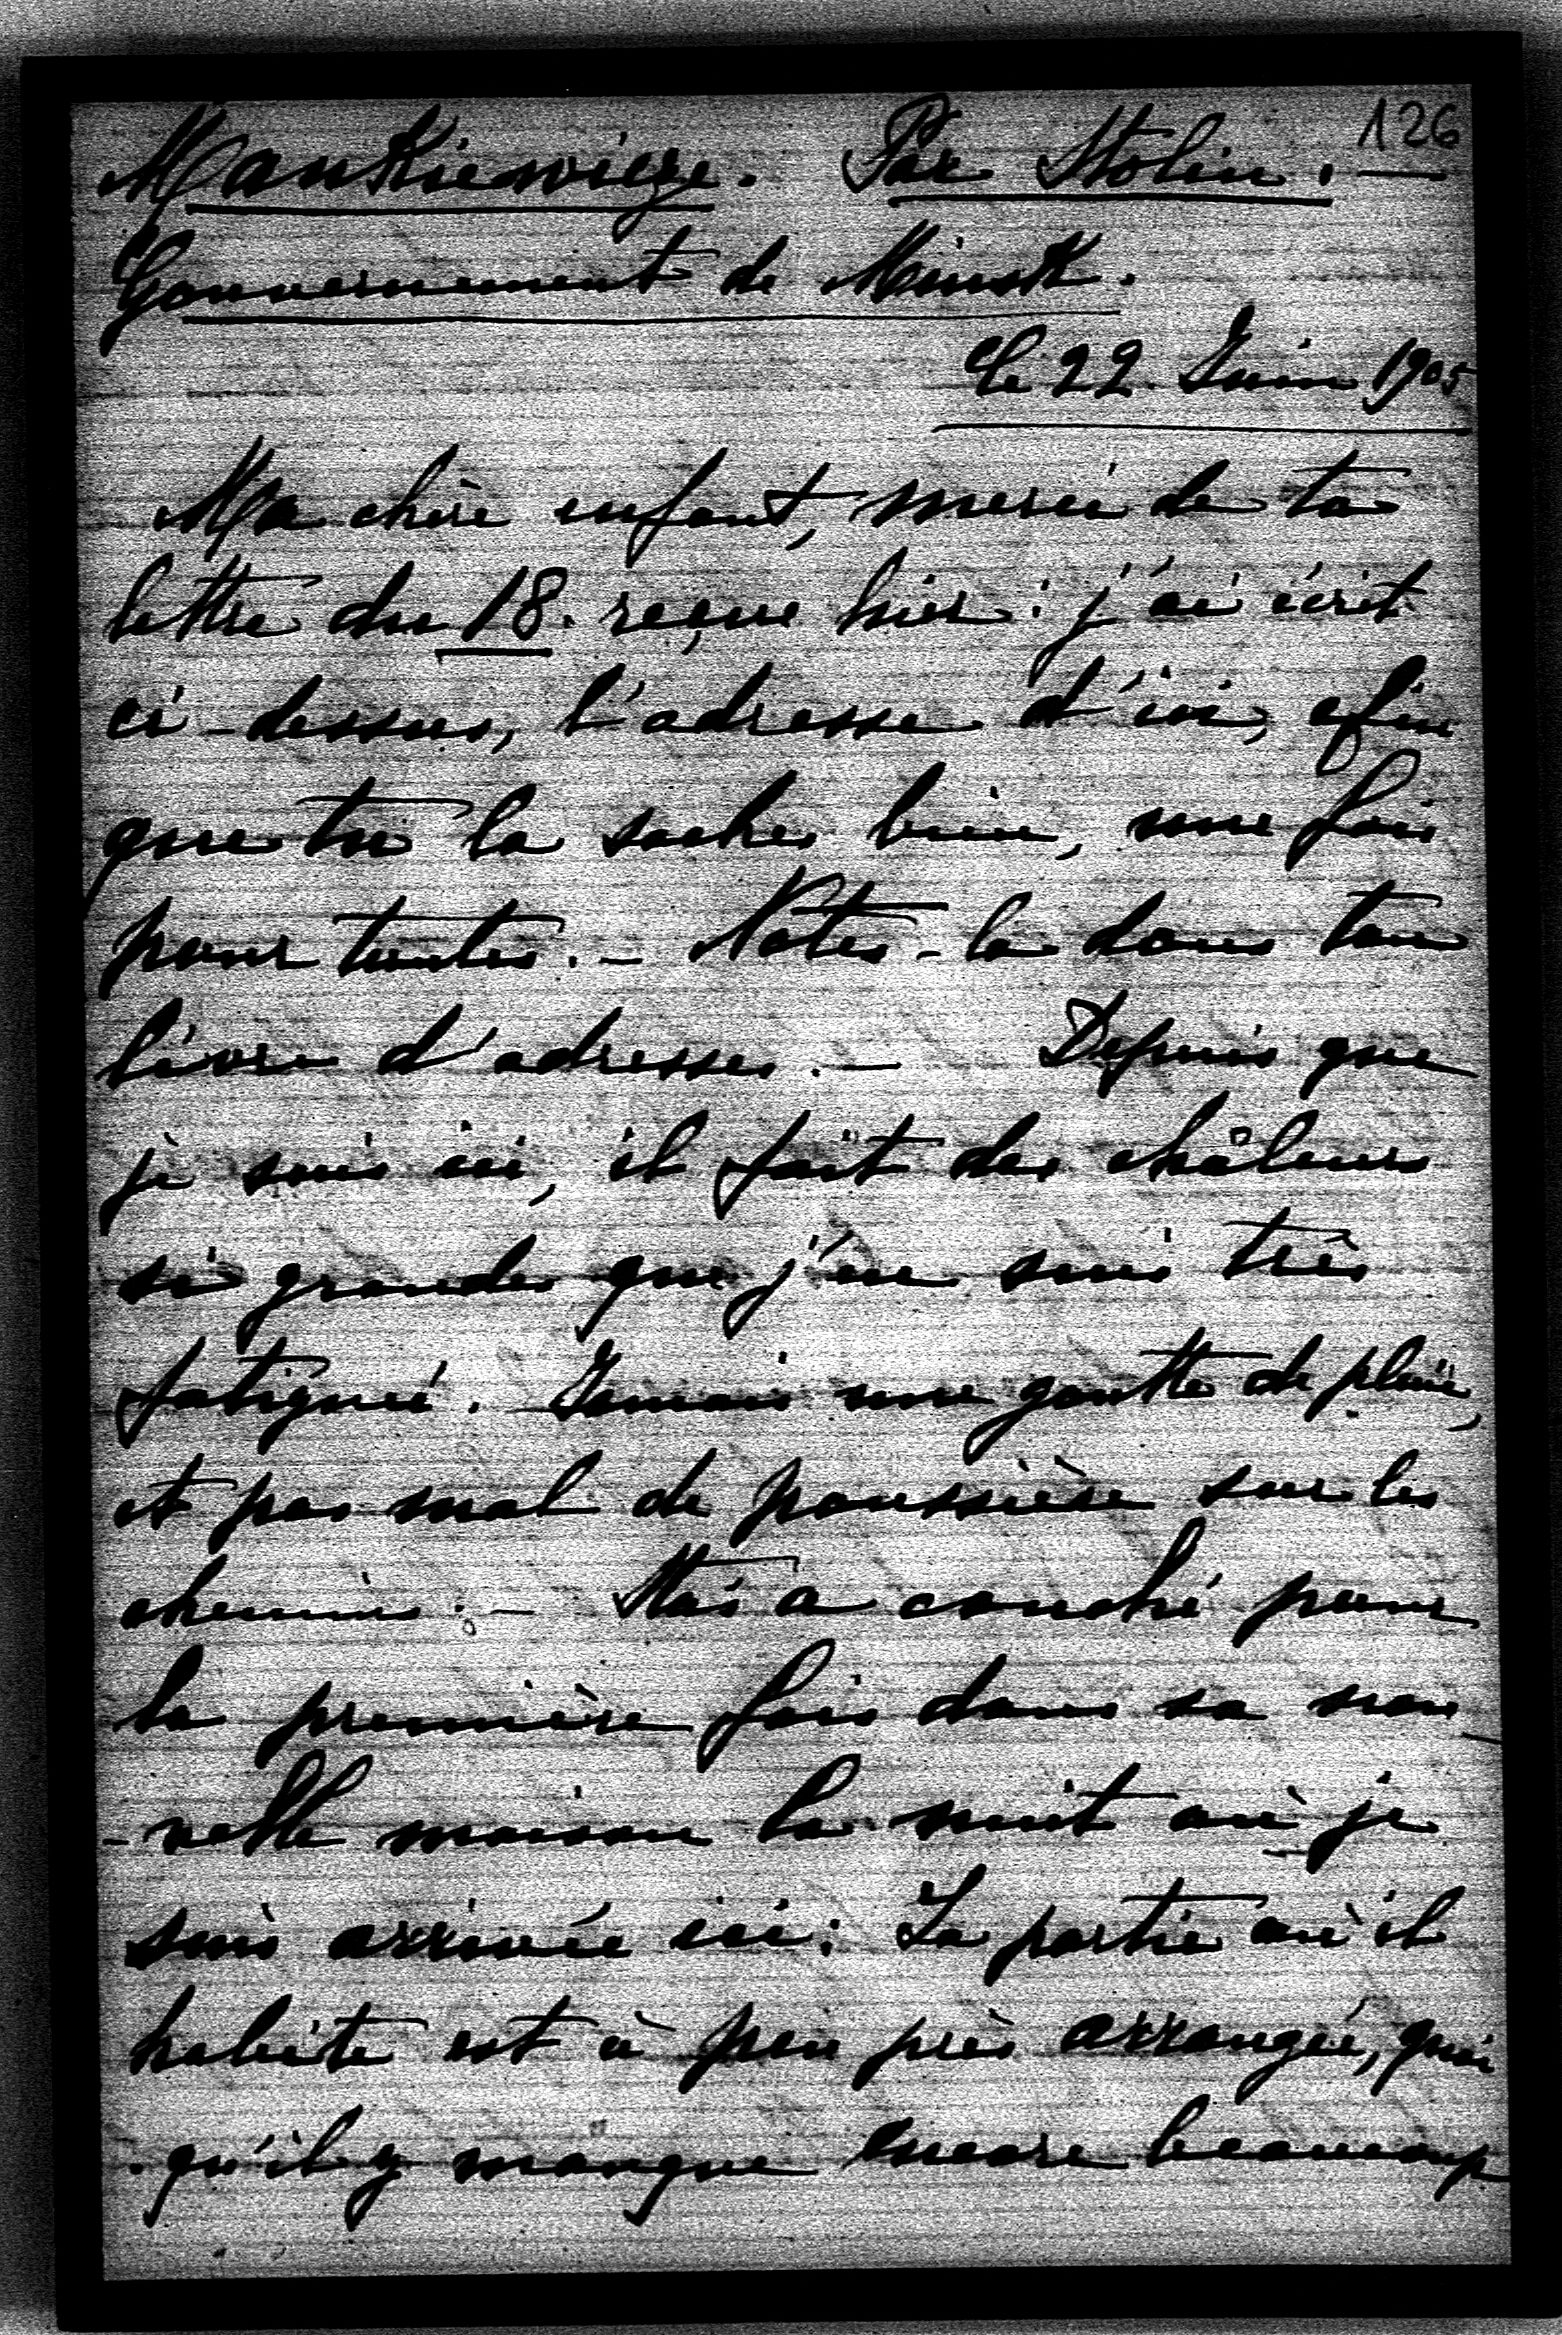 126
Mankiewicze. Par Stolin. —
Gouvernement de Minsk.
le 22 Juin 1905
Ma chère enfant, merci de ta
lettre du 18. reçue hier : j'ai écrit
ci-dessus, l'adresse d'ici, afin
que tu la saches bien, une fois
pour toutes. — Notes-la dans ton
livre d'adresses. — Depuis que
je suis ici, il fait des châleurs
si grandes que j'en suis très
fatiguée. Jamais une goutte de pluie,
et pas mal de poussière sur les
chemins. — Stas a couché pour
la première fois dans sa nou-
-velle maison la nuit où je
suis arrivée ici : La partie où il
habite est à peu près arrangée, quoi
qu'il y manque encore beaucoup